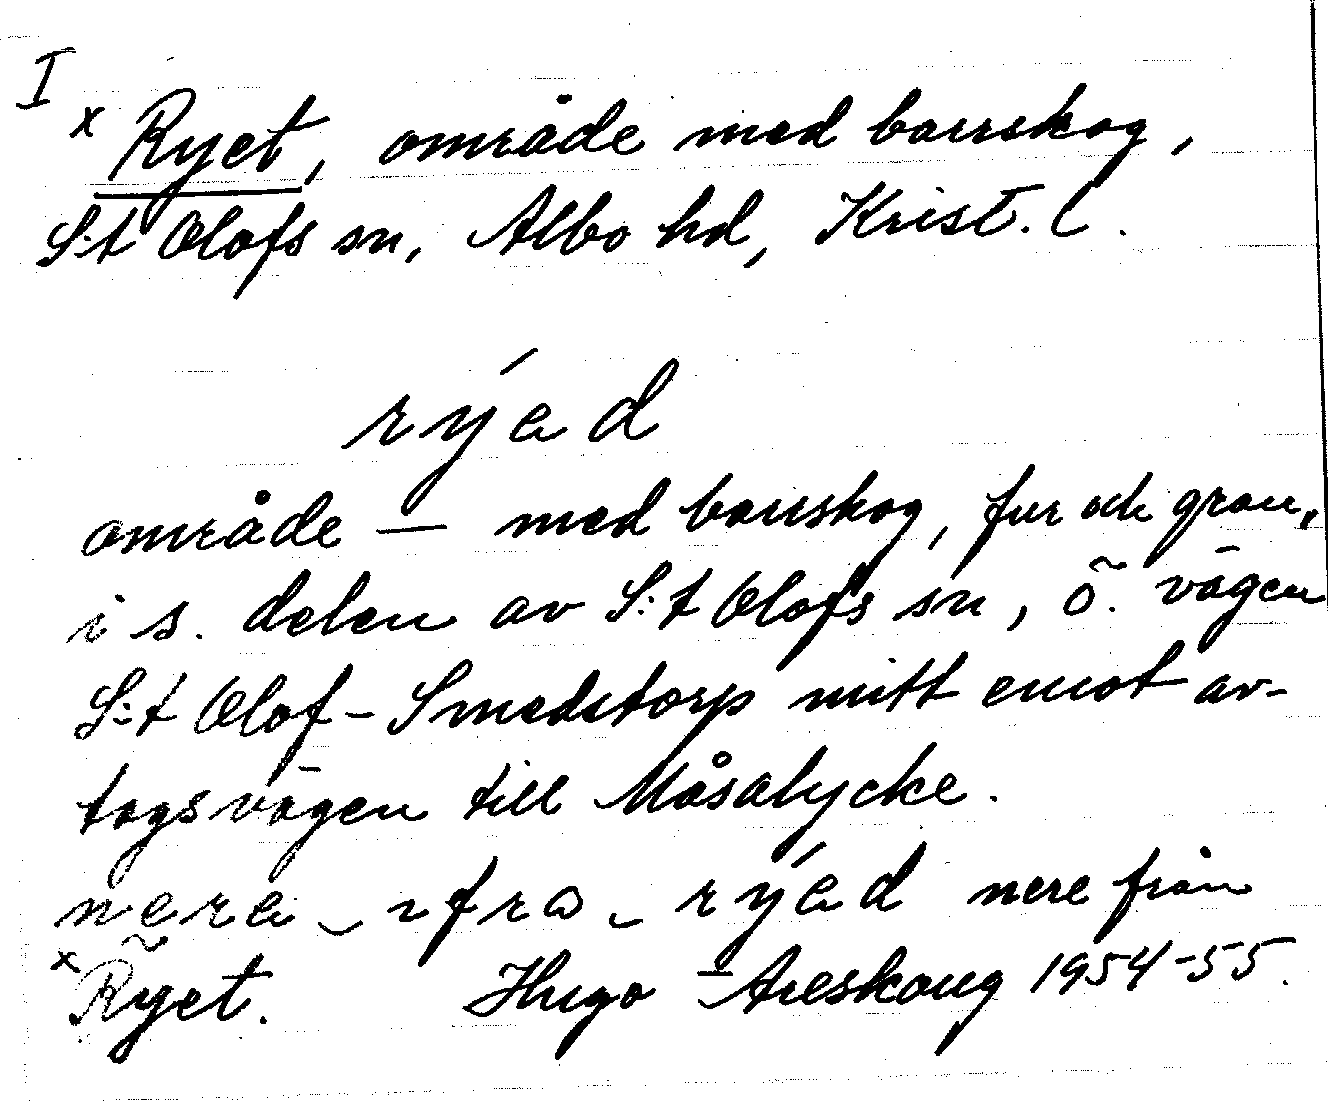 I
x Ryet, område med barrskog,
S:t Olofs sn, Albo hd, Krist. l.
rýad
område — med barrskog, fur och gran,
i s. delen av S:t Olofs sn, ö. vägen
S:t Olof - Smedstorp mitt emot av-
tagsvägen till Måsalycke.
nera rýad nere från
x Ryet. Hugo Areskoug 1954-55.